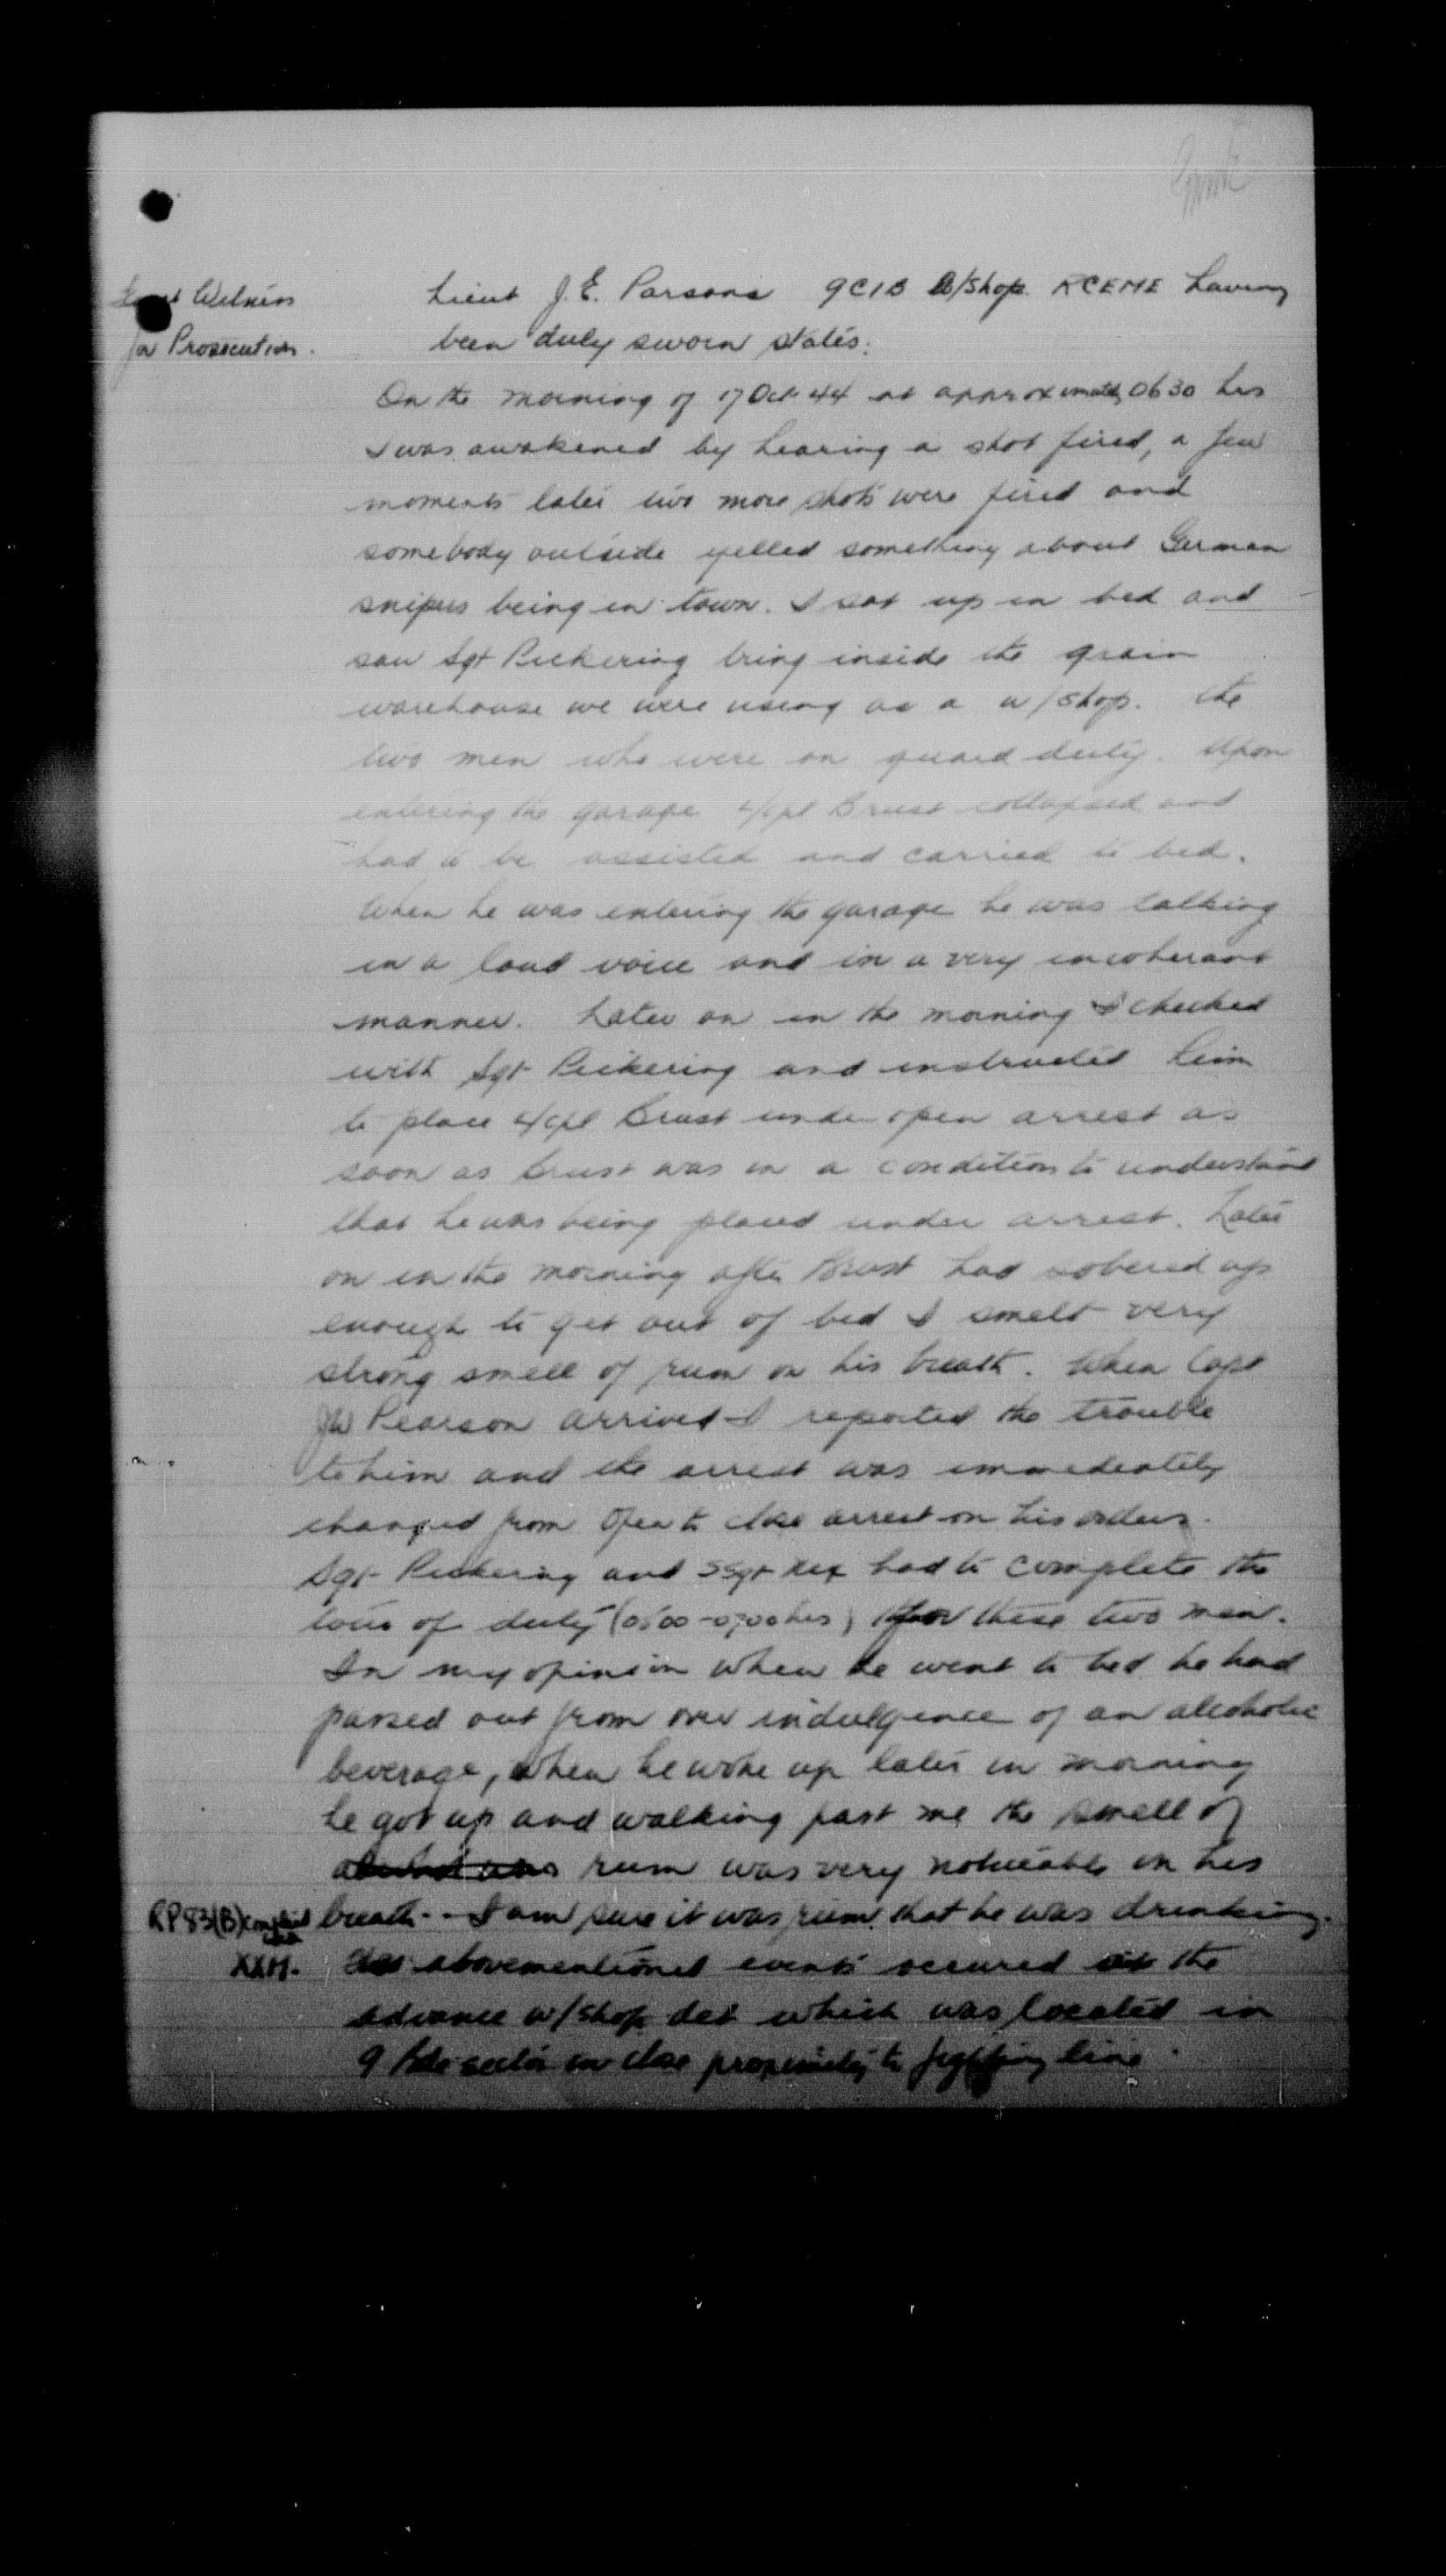 Witness
for Prosecution.
Lieut J.E. Parsons 9CIB W/Shop. RCEME having
been duly sworn states:
On the morning of 17 Oct 44 at approximately 0630 hrs
I was awakened by hearing a shot fired, a few
moments later two more shots were fired and
somebody outside yelled something about German
snipers being in town. I sat up in bed and
saw Sgt Pickering bring inside the grain
warehouse we were using as a w/shop. the
two men who were on guard duty. Upon
entering the garage L/Cpl Brust collapsed and
had to be assisted and carried to bed.
When he was entering the garage he was talking
in a loud voice and in a very incoherant
manner. Later on in the morning I checked
with Sgt Pickering and instructed him
to place L/Cpl Brust under open arrest as
soon as Brust was in a condition to understand
that he was being placed under arrest. Later
on in the morning after Brust had sobered up
enough to get out of bed I smelt very
strong smell of rum on his breath. When Capt
JW Pearson arrived I reported the trouble
to him and the arrest was immediately
changed from Open to close arrest on his orders.
Sgt Pickering and SSgt had to complete the
tour of duty (0500-0700 hrs) for these two men.
In my opinion when he went to bed he had
passed out from over indulgence of an alcoholic
beverage, when he woke up later in morning
he got up and walking past me the smell of
alcohol was rum was very noticeable on his
RP83(B) complied
with
breath. - I am sure it was rum that he was drinking.
XXM.
abovementioned events occured at the
advance w/shop det which was located in
9 Bde sector in close proximity to fighting line.